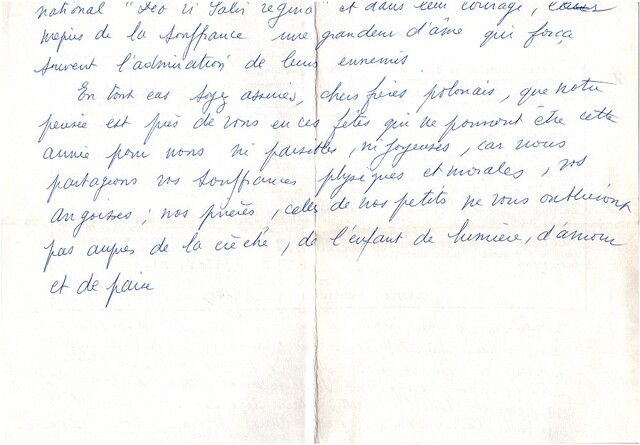 national "Deo            regina" et dans leur courage,
mépris de la souffrance une grandeur d'âme qui força
souvent l'admiration de leurs ennemis.
En tout cas soyez assurés, chers frères polonais, que notre
pensée est près de vous en ces fêtes qui ne pourront être cette
année pour nous ni paisibles, ni joyeuses, car nous
partageons vos souffrances physiques et morales, vos
angoisses ; nos prières, celles de nos petits ne vous oublieront
pas auprès de la crèche, de l'enfant de lumière, d'amour
et de paix